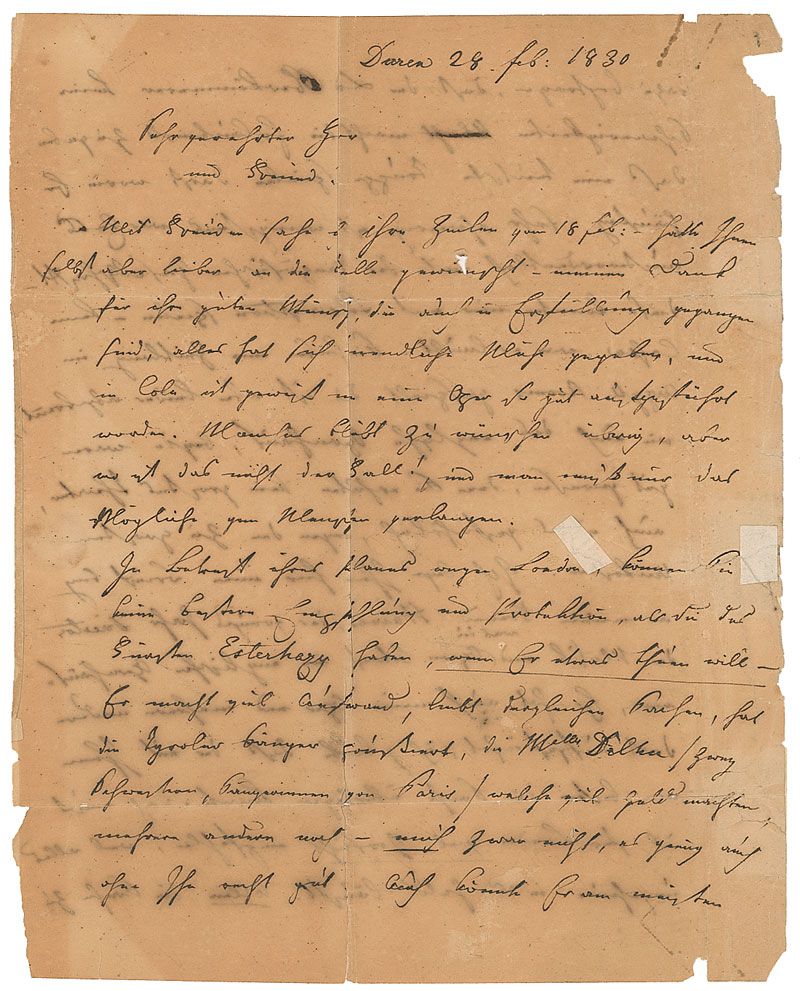 Düren 28 feb: 1830
Sehr geehrter Herr
und Freünd.
Mit Freüden sahe i ihre Zeilen vom 18 feb: – hätte Ihnen
selbst aber lieber an die Stelle gewünscht – nemmen Dank
für ihre guten Wünsche, die auch in Erfüllung gegangen
sind, alles hat sich unendliche Mühe gegeben, und
in Cöln ist gewiß nie eine Oper so gut aufgeführt
worden. Manches bleibt zu wünschen übrig, aber
wo ist das nicht der Fall!, und man muß nur das
Mögliche von Menschen verlangen.
In Betreff ihres Planes wegen London, können Sie
keine bessere Empfehlung und Protektion, als die des
Fürsten Esterhazy haben, wenn Er etwas thuen will –
Er macht viel Aufwand, liebt dergleichen Sachen, hat
die Tyroler Sänger poußiert, die Mselles /zwey
Schwestern, Sängerinnen von Paris/ welche viel Geld machten,
mehrere andere noch – mich zwar nicht, es gieng auch
ohne Ihn recht gut. Auch könnte Er am meisten